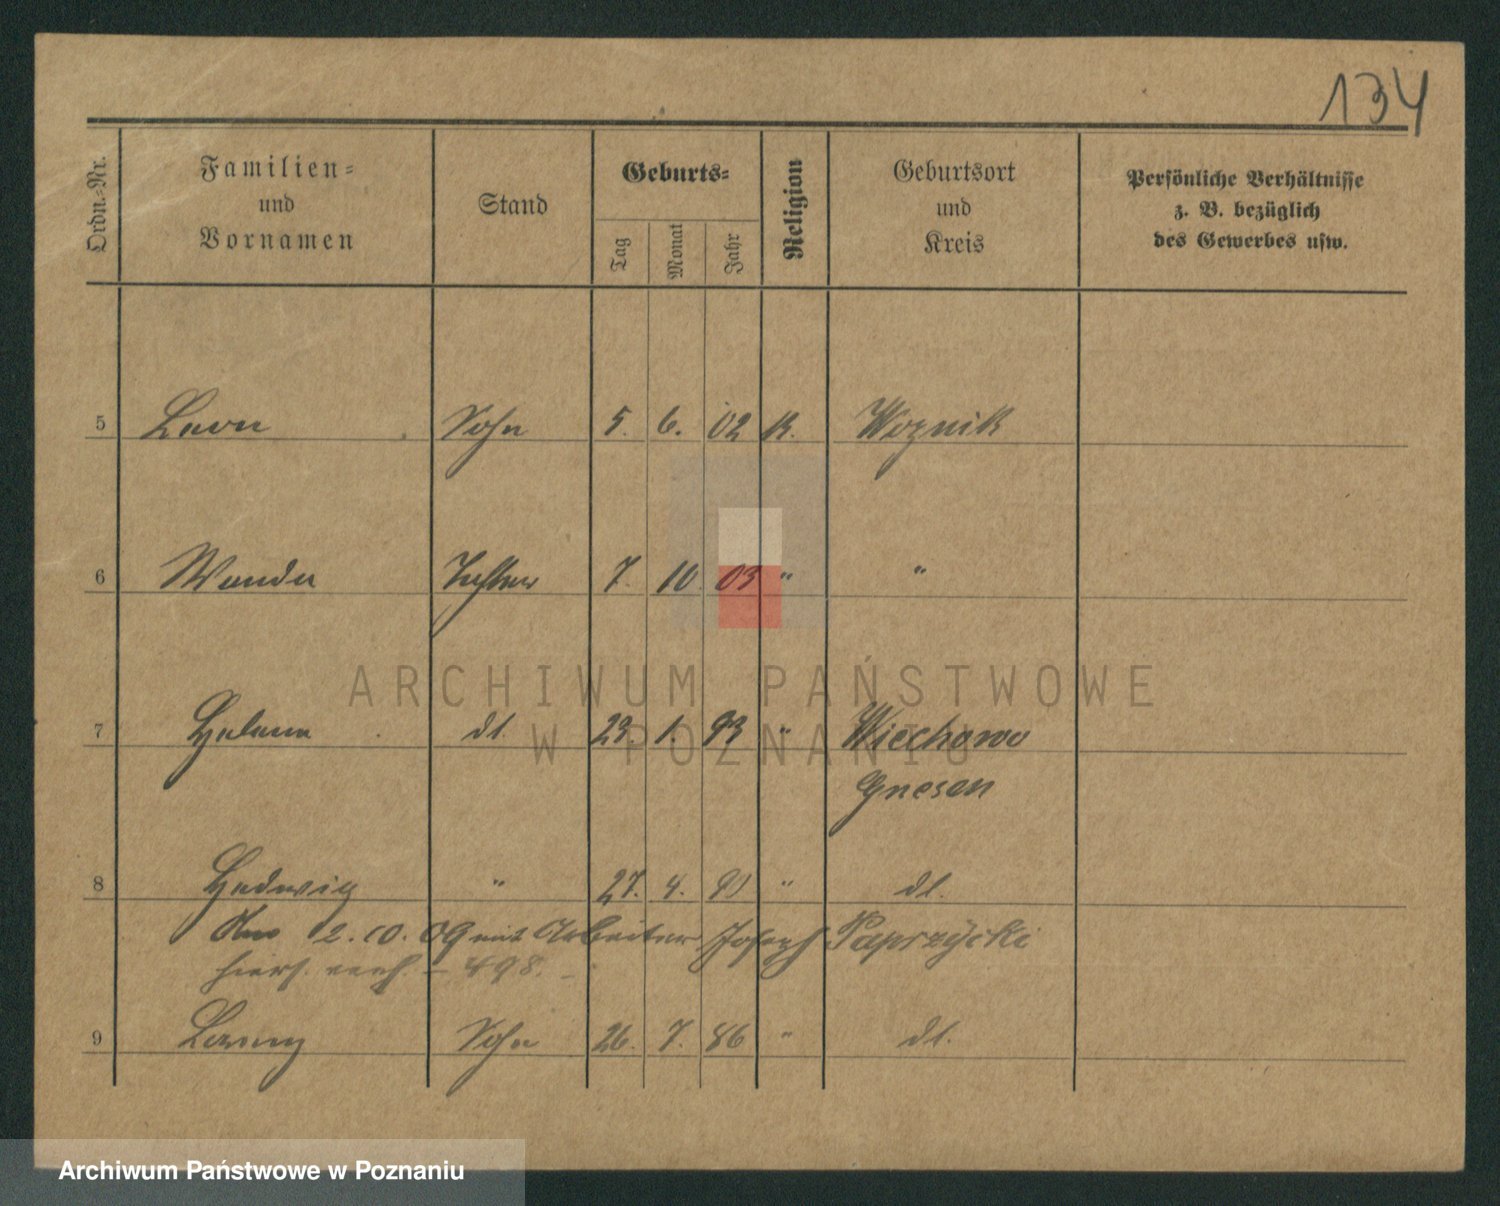 134
Ordn.-Nr.
Familien-
und
Vornamen
Stand
Geburts-
Tag
Monat
Jahr
Religion
Geburtsort
und
Kreis
Persönliche Verhältnisse
z. B. bezüglich
des Gewerbes usw.
5 Leon Sohn 5. 6. 02 K. Woznik
6 Wanda Tochter 7. 10. 03 " "
ARCHIWUM PAŃSTWOWE
W POZNANIU
7 Helena dt. 23. 1. 93 " Wiechowo
Gnesen
8 Hedwig " 27. 4. 91 " dt.
Am 12.10.09 mit Arbeiter Joseph Paprzycki
hiers. verh. – 498. –
9 Lorenz Sohn 26. 7. 86 " dt.
Archiwum Państwowe w Poznaniu